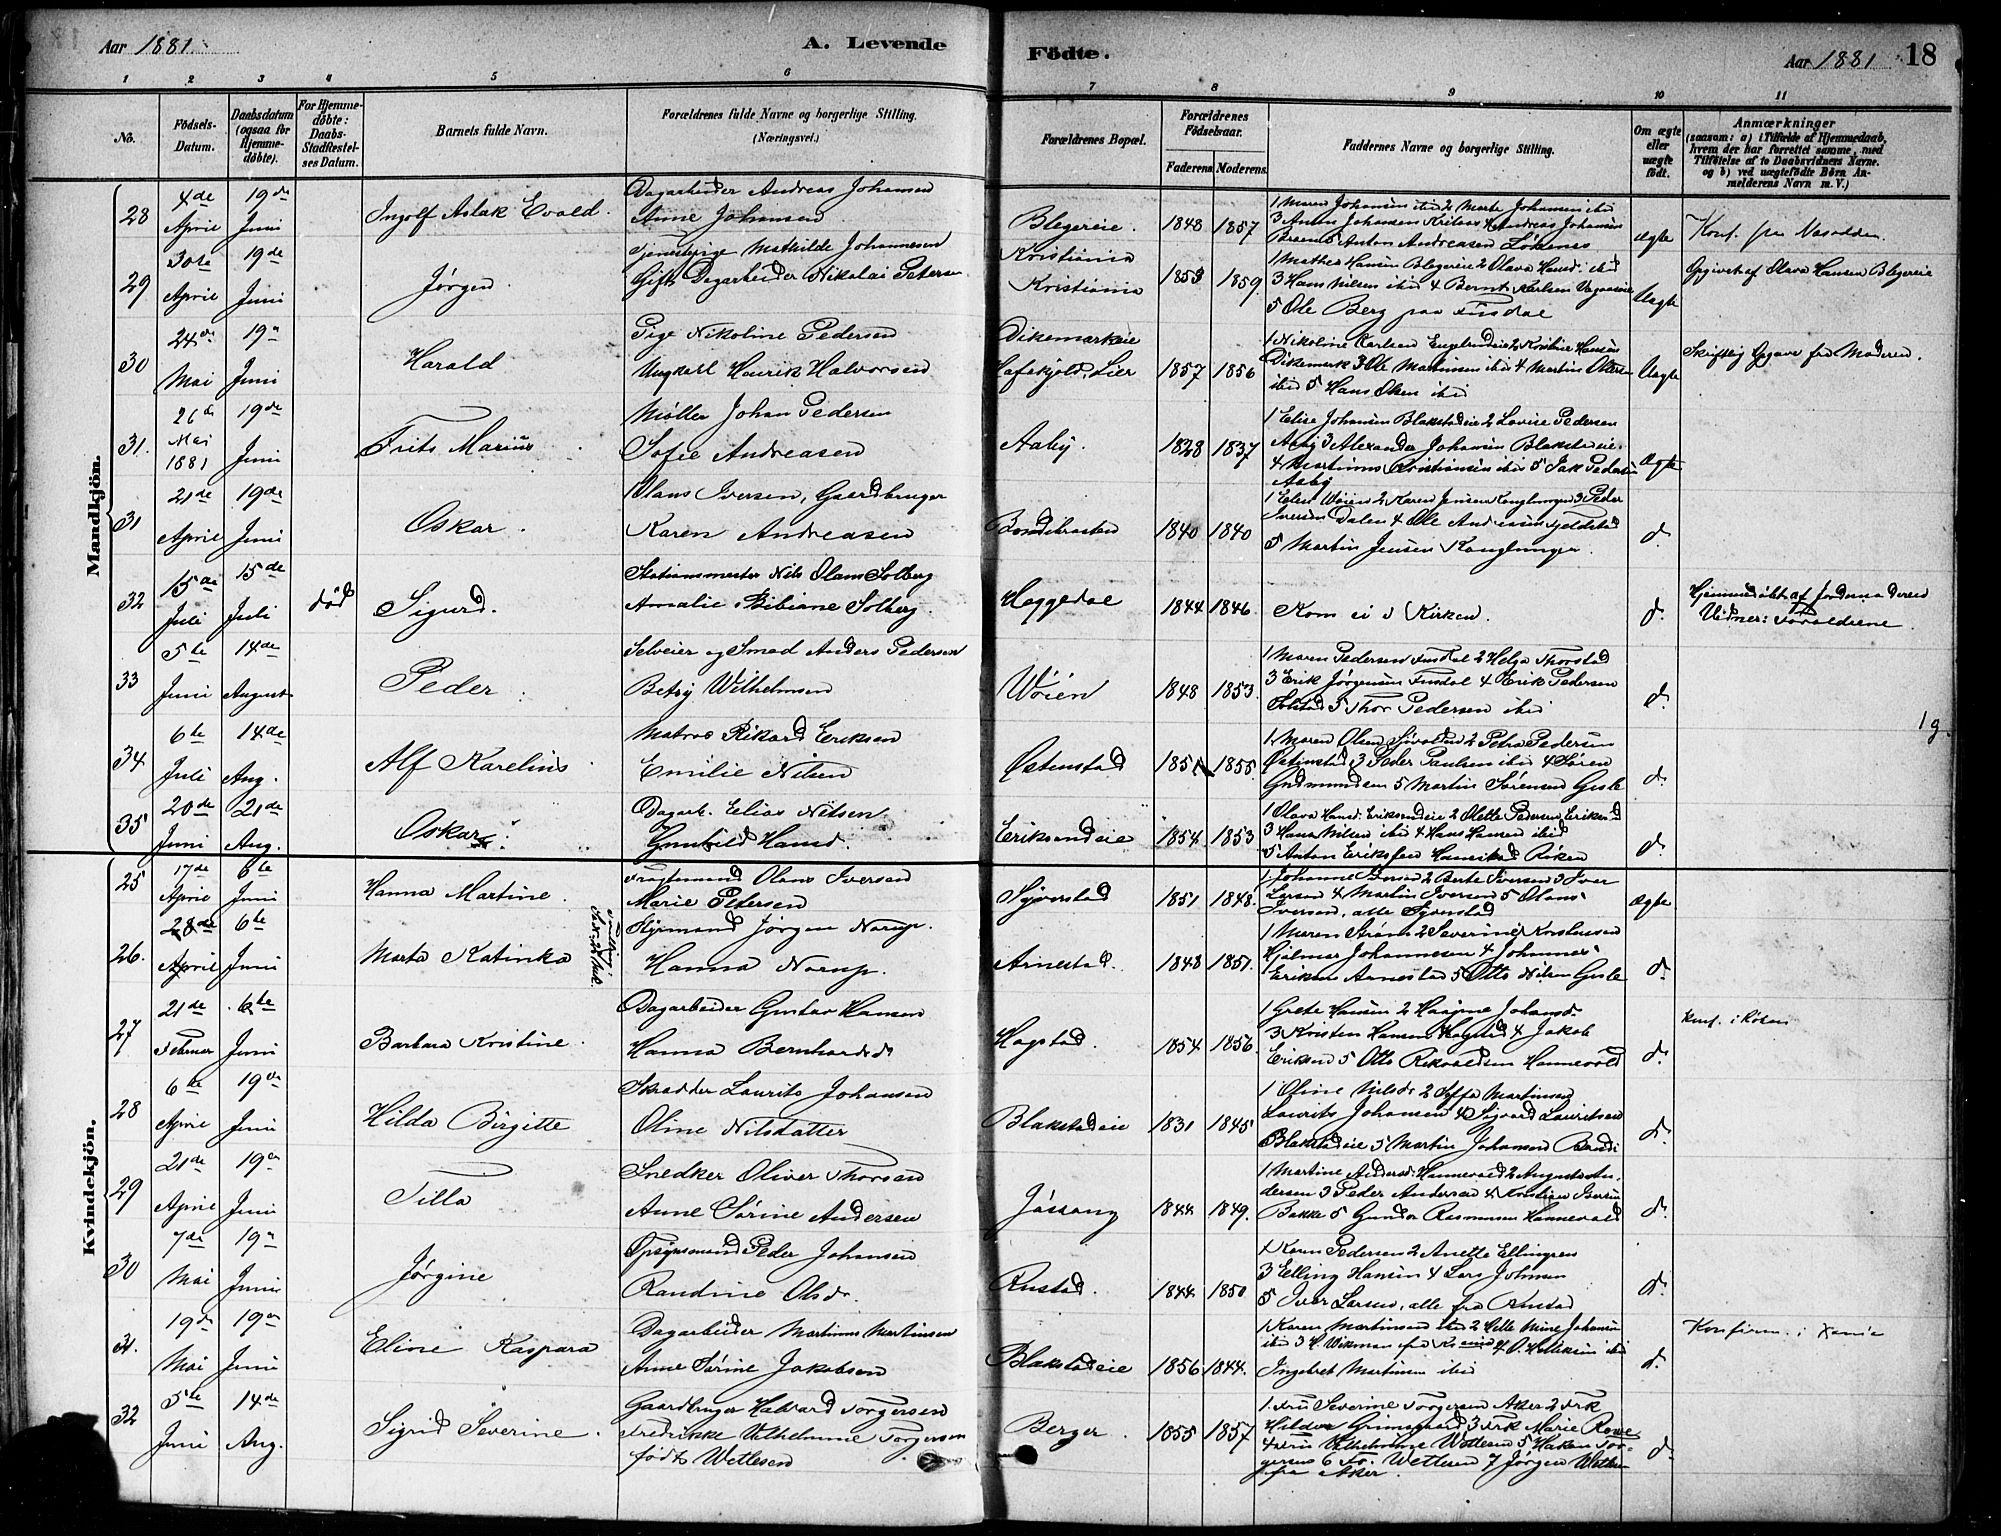 Aar 1881. A. Levende
Födte. Aar 1881 18
1 2 3 4 5 6
7 8 9 10 11
No. Födsels-Datum. Daabsdatum (ogsaa for Hjemmedöbte). For Hjemmedöbte: Daabs-Stadfæstelses Datum. Barnets fulde Navn. Forældrenes fulde Navne og borgerlige Stilling. (Næringsvei.)
Forældrenes Bopæl. Forældrenes Födselsaar. Faderens. Moderens. Faddernes Navne og borgerlige Stilling. Om ægte eller uægte födt. Anmærkninger (saasom: a) i Tilfælde af Hjemmedaab, hvem der har forrettet samme, med Tilföielse af to Daabsvidners Navne. og b) ved uægtefödte Börn Anmelderens Navn m. V.)
Mandkjön.
28 4de April 19de Juni Ingolf Aslak Evald. Dagarbeider Andreas Johansen
Anne Johansen
Blegereie. 1848 1857 1 Maren Johansen ibid 2 Marte Johansen ibid
3 Anton Johansen 4 Andreas Johansen
Anton Andreasen Lökenes
Ægte Konf. fra Nesodden.
29 30te April 19de Juni Jørgen. Tjenestepige Mathilde Johannesen
Gift Dagarbeider Nikolai Petersen
Kristiania
Kristiania 1853 1859. 1 Mathea Hansen Blegereie 2 Olava Hansd. ibid
3 Hans Nilsen ibid 4 Bernt Karlsen
5 Ole Berg paa Fusdal
Uægte Opgivet af Olava Hansen Blegereie
30 24de Mai 19de Juni Harald Pige Nikoline Pedersen
Ungkarl Henrik Halvorsen
Dikemarkeie
Lier 1857 1856 1 Nikoline Karlsen 2 Kristine Hansen
Dikemark 3 Ole Martinsen ibid 4 Martin Olsen
ibid 5 Hans Olsen ibid
Uægte Skriftlig Opgave fra Moderen.
31. 26de Mai 1881 19de Juni Frits Marius Møller Johan Pedersen
Sofie Andreasen
Aaby. 1828 1837 1 Elise Johansen Blakstadeie 2 Lovise Pedersen
Aaby 3 Alexander Johansen Blakstadeie.
4 Martinus Kristiansen ibid 5 Isak Pedersen
Aaby
Ægte
31 21de April 19de Juni Oskar. Olaus Iversen, Gaardbruger
Karen Andreasen
Bondibraaten 1840 1840 1 Elen Wøien 2 Karen Jensen Konglungen 3 Peder
Iversen Dalen 4 Ole Andresen
5 Martin Jensen Konglungen.
do.
32 15de Juli 15de Juli død Sigurd. Stationsmester Nils Olaus Solberg
Amalie Bibiane Solberg.
Heggedal 1844 1846 Kom ei i Kirken. do. Hjemmedøbt af Jordemoderen
Vidner: Forældrene.
33 5te Juni 14de August Peder. Selveier og Smed Anders Pedersen
Betsy Wilhelmsen
Wøien 1848 1853. 1 Maren Pedersen Fusdal 2 Helga Thorstad
3 Erik Jørgensen Fusdal 4 Erik Pedersen
Solstad 5 Thor Pedersen ibid
do.
1 g.
34 6te Juli 14de Aug. Alf Karelius. Matros Rikard Eriksen
Emilie Nilsen
Østenstad 1851 1855. 1 Maren Olsen 2 Petra Pedersen
Østenstad 3 Peder Paulsen ibid 4 Søren
Gudmundsen 5 Martin Sørensen Gisle
do.
35 20de Juni 21de Aug. Oskar. Dagarb. Elias Nilsen
Gunhild Hansd.
Eriksrudeie 1854 1853 1 Olava Hansd. Eriksrudeie 2 Olette Pedersen Eriksrud
3 Hans Nilsen ibid 4 Hans Hansen ibid
5 Anton Eriksen Røken
do.
Kvindekjön.
25 17de April 6te Juni Hanna Martine. Fragtemand Olaus Iversen
Marie Pedersen
Syverstad 1851 1848. 1 Johanne 2 Berte Iversen 3 Iver
Larsen 4 Martin Iversen 5 Olaus
Iversen, alle Syverstad
Ægte.
26. 28de April 6te Juni Marta Katinka Styrmand Jørgen Norup.
Hanna Norup.
Arnestad. 1848 1851. 1 Maren Strøm 2 Severine Kristensen
Hjalmar Johannesen 4 Johannes
Eriksen Arnestad 5 Otto Nilsen Gisle
do.
27 21de Februar 6te Juni Barbara Kristine. Dagarbeider Gustav Hansen
Hanna Bernhardsd.
Hogstad. 1854 1856. 1 Grete Hansen 2 Johansd.
3 Kristen Hansen Hogstad 4 Jakob
Eriksen 5 Otto Rikvaldsen Hannevold
do. Konf. i Røken
28 6te April 19de Juni Hilda Birgitte Skrædder Laurits Johansen
Oline Nilsdatter
Blakstadeie 1831 1845 1 Oline Nilsdr 2 Martinsen
Laurits Johansen 4 Sigvard Lauritsen
Blakstadeie 5 Martin Johansen Bondi
do.
29 21de April 19de Juni Tilla Snedker Oliver Thorsen
Anne Sørine Andersen
Jøssang 1844 1849. 1 Martine Andersd. Hannevold 2 Augusta An-
dersen 3 Peder Andersen 4 Kristian Iversen
Bakke 5 Gunder Rasmussen Hannevold
do.
30 7de Mai 19de Juni Jørgine Opsynsmand Peder Johansen
Randine Olsdr.
Rustad. 1844 1850 1 Karen Pedersen 2 Anette Ellingsen
3 Elling Hansen 4 Lars Johnsen
5 Iver Larsen, alle fra Rustad
do.
31. 19de Mai 19de Juni Eline Kaspara Dagarbeider Martinus Martinsen
Anne Sørine Jakobsen
Blakstadeie 1856 1844. 1 Karen Martinsen ibid 2 Helle Mine Johansen
ibid 3
Ingebret Martinsen ibid
do. Konfirm. i Xania
32 5te Juni 14de Aug. Sigrid Severine. Gaardbruger Halvard Torgersen
Fredrikke Vilhelmine Torgersen
født Wettesen
Berger. 1855 1857 1. Fru Severine Torgersen Aker 2 Frk
Hilda Grimsgaard 3 Frk Marie
4 Fru Vilhelmine Wettesen 5 Hakon Tor-
gersen 6 Fr. Wettesen 7 Jørgen Wettesen
fra Aker.
do.